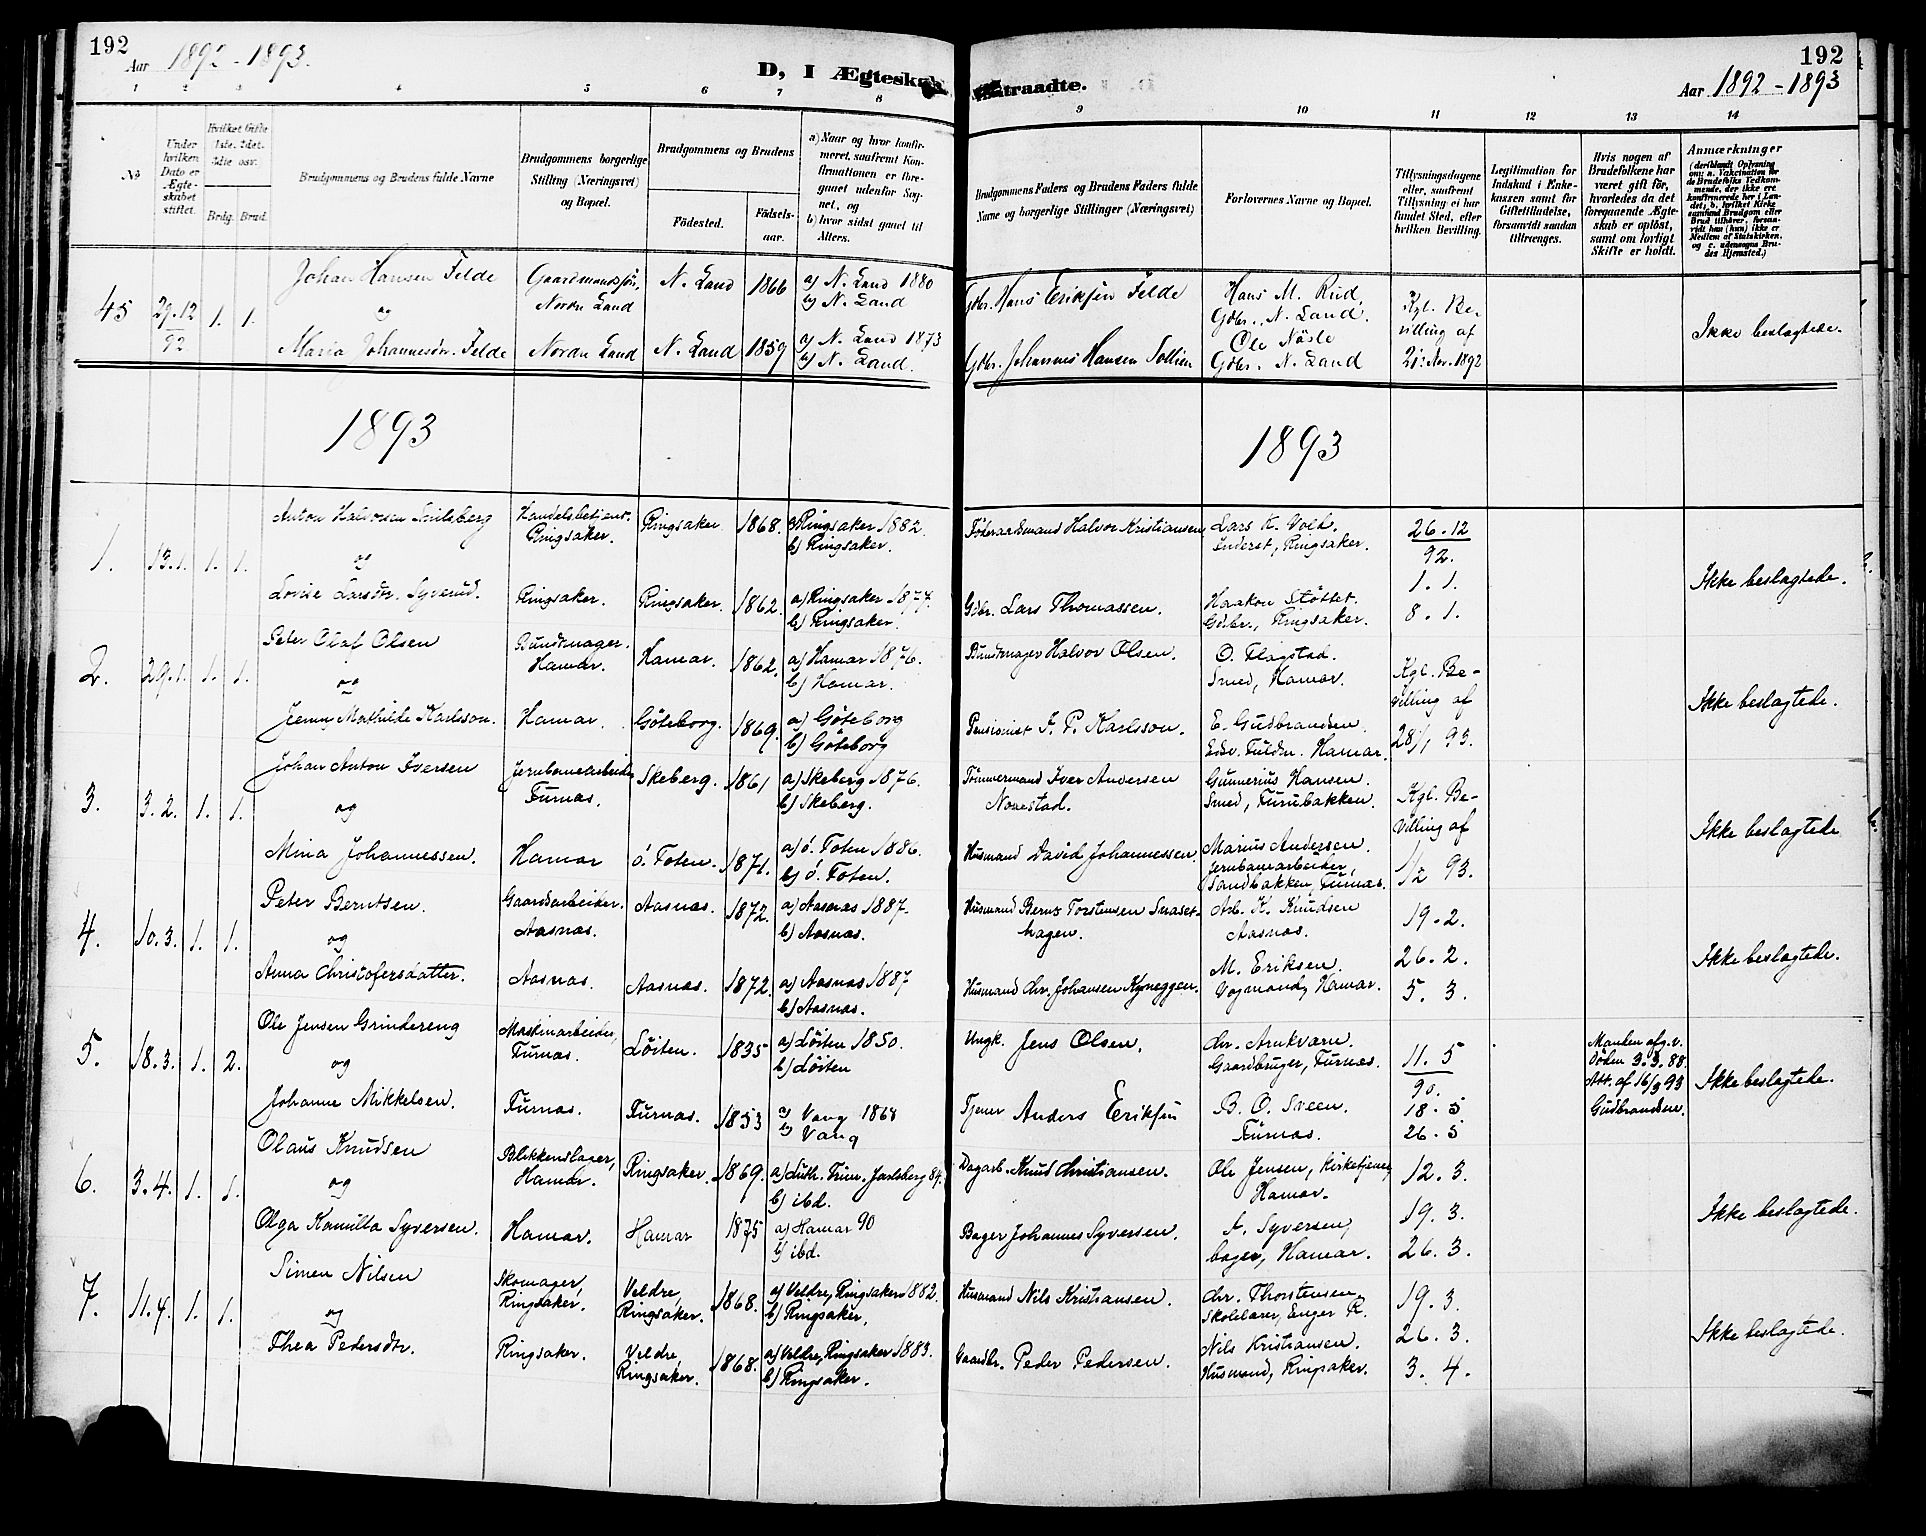 192
Aar 1892-1893.
D, I Ægteskab
1 2 3 4 5 6 7 8
No
Under hvilken Dato er Ægteskabet stiftet.
Hvilket Gifte 1ste. 2det. 3die osv.
Brdg. Brud.
Brudgommens og Brudens fulde Navne
Brudgommens borgerlige Stilling (Næringsvei) og Bopæl.
Brudgommens og Brudens
Födested.
Födselsaar.
a) Naar og hvor konfirmeret, saafremt Konfirmationen er foregaaet udenfor Sognet, og
b) hvor sidst gaaet til Alters.
45 29.12 92 1. 1.
Johan Hansen Felde Gaardmandssøn, Nordre Land N. Land 1866 a) N. Land 1880 b) N. Land
og
Maria Johannesdr. Felde Nordre Land N. Land 1859 a) N. Land 1873 b) N. Land.
1893
1. 13.1. 1. 1.
Anton Halvorsen Handelsbetjent. Ringsaker. Ringsaker 1868. a) Ringsaker 1882. b) Ringsaker.
og
Lovise Larsdtr. Syverud. Ringsaker. Ringsaker. 1862. a) Ringsaker 1877. b) Ringsaker.
2. 29.1. 1. 1.
Peter Olaf Olsen Bundtmager. Hamar. Hamar. 1862. a) Hamar 1876. b) Hamar.
og
Jenny Mathilde Karlsson. Hamar. Göteborg. 1869. a) Göteborg b) Göteborg
3. 3.2. 1. 1.
Johan Anton Iversen Jernbanearbeider Furnæs. Skeberg. 1861 a) Skeberg 1876. b) Skeberg.
og
Mina Johannessen. Hamar ö. Toten. 1871. a) ö. Toten 1886. b) ö. Toten.
4. 10.3. 1. 1.
Peter Berntsen. Gaardsarbeider. Aasnæs. Aasnæs. 1872. a) Aasnæs 1887. b) Aasnæs.
og
Anna Christofersdatter. Aasnæs. Aasnæs. 1872. a) Aasnæs 1887 b) Aasnæs.
5. 18.3. 1. 2.
Ole Jensen Grindereng Maskinarbeider, Furnæs. Löiten. 1835 a) Löiten 1850. b) Löiten
og
Johanne Mikkelsen. Furnæs. Furnæs. 1853 a) Vang 1868 b) Vang
6. 3.4. 1. 1.
Olaus Knudsen Blikkenslager, Hamar. Ringsaker. 1869. a) Luth. Frim. Jarlsberg 84. b) ibd.
og
Olga Kamilla Syversen. Hamar. Hamar 1875 a) Hamar 90 b) ibd.
7. 11.4. 1. 1.
Simen Nilsen Skomager, Ringsaker. Veldre, Ringsaker. 1868. a) Veldre, Ringsaker 1882. b) Ringsaker,
og
Thea Pedersdtr. Ringsaker. Veldre, Ringsaker. 1868. a) Veldre, Ringsaker 1883. b) Ringsaker.
indtraadte.
192
Aar 1892-1893
9 10 11 12 13 14
Brudgommens Faders og Brudens Faders fulde Navne og borgerlige Stillinger (Næringsvei)
Forlovernes Navne og Bopæl.
Tillysningsdagene eller, saafremt Tillysning ei har fundet Sted, efter hvilken Bevilling.
Legitimation for Indskud i Enkekassen samt for Giftetilladelse, forsaavidt saadan tiltrænges.
Hvis nogen af Brudefolkene har været gift för, hvorledes da det foregaaende Ægteskab er oplöst, samt om lovligt Skifte er holdt.
Anmærkninger
(deriblandt Oplysning om: a. Vakcination for de Brudefolks Vedkommende, der ikke ere konfirmerede her i Landet; b. hvilket Kirkesamfund Brudgom eller Brud tilhörer, forsaavidt han (hun) ikke er Medlem af Statskirken. og c. udensogns Brudes Hjemsted.)
Gdbr. Hans Eriksen Felde
Hans M. Rud, Gdbr., N. Land.
Kgl. Bevilling af 21. Nov. 1892
Ikke beslagtede.
Gdbr. Johannes Hansen Sollien
Ole Nösle Gdbr. N. Land
1893
Föderaadsmand Halvor Kristiansen Lars K. Ringsaker. 26.12 92.
1. 1. Ikke beslagtede.
Gdbr. Lars Thomassen. Haakon Stöttet. Gdbr., Ringsaker. 8. 1.
Bundtmager Halvor Olsen. O. Flagstad. Smed, Hamar.
Kgl. Bevilling af 28/1 93.
Ikke beslagtede.
Pensionist J. P. Karlsson. E. Gudbrandsen Hamar.
Tömmermand Iver Andersen Gunnerius Hansen. Smed, Furubakken.
Kgl. Bevilling af 1/2 93.
Ikke beslagtede
Husmand David Johannessen. Marius Andersen. Jernbanearbeider, Sandbakken, Furnæs.
Husmand Bernt Torstensen Arb. K. Knudsen Aasnæs. 19.2.
26.2. Ikke beslagtede.
Husmand Chr. Johansen M. Eriksen. Vognmand, Hamar. 5. 3.
Ungk. Jens Olsen. Chr. Arnkværn. Gaardbruger, Furnæs. 11. 5 90.
Manden afg. v. Döden 3.3.88. Att. af 16/3 93 Gudbrandsen.
Ikke beslagtede.
Tjener Anders Eriksen B. O. Sveen. Furnæs. 18.5 26.5
Dagarb. Knud Christiansen. Ole Jensen, Kirketjener, Hamar. 12. 3.
19. 3. Ikke beslagtede.
Bager Johannes Syversen. A. Syversen, bager, Hamar. 26. 3.
Husmand Nils Kristiansen. Chr. Thorstensen, Skolelærer, Enger R. 19. 3.
26. 3. Ikke beslagtede.
Gaardbr. Peder Pedersen. Nils Kristiansen. Husmand, Ringsaker. 3. 4.